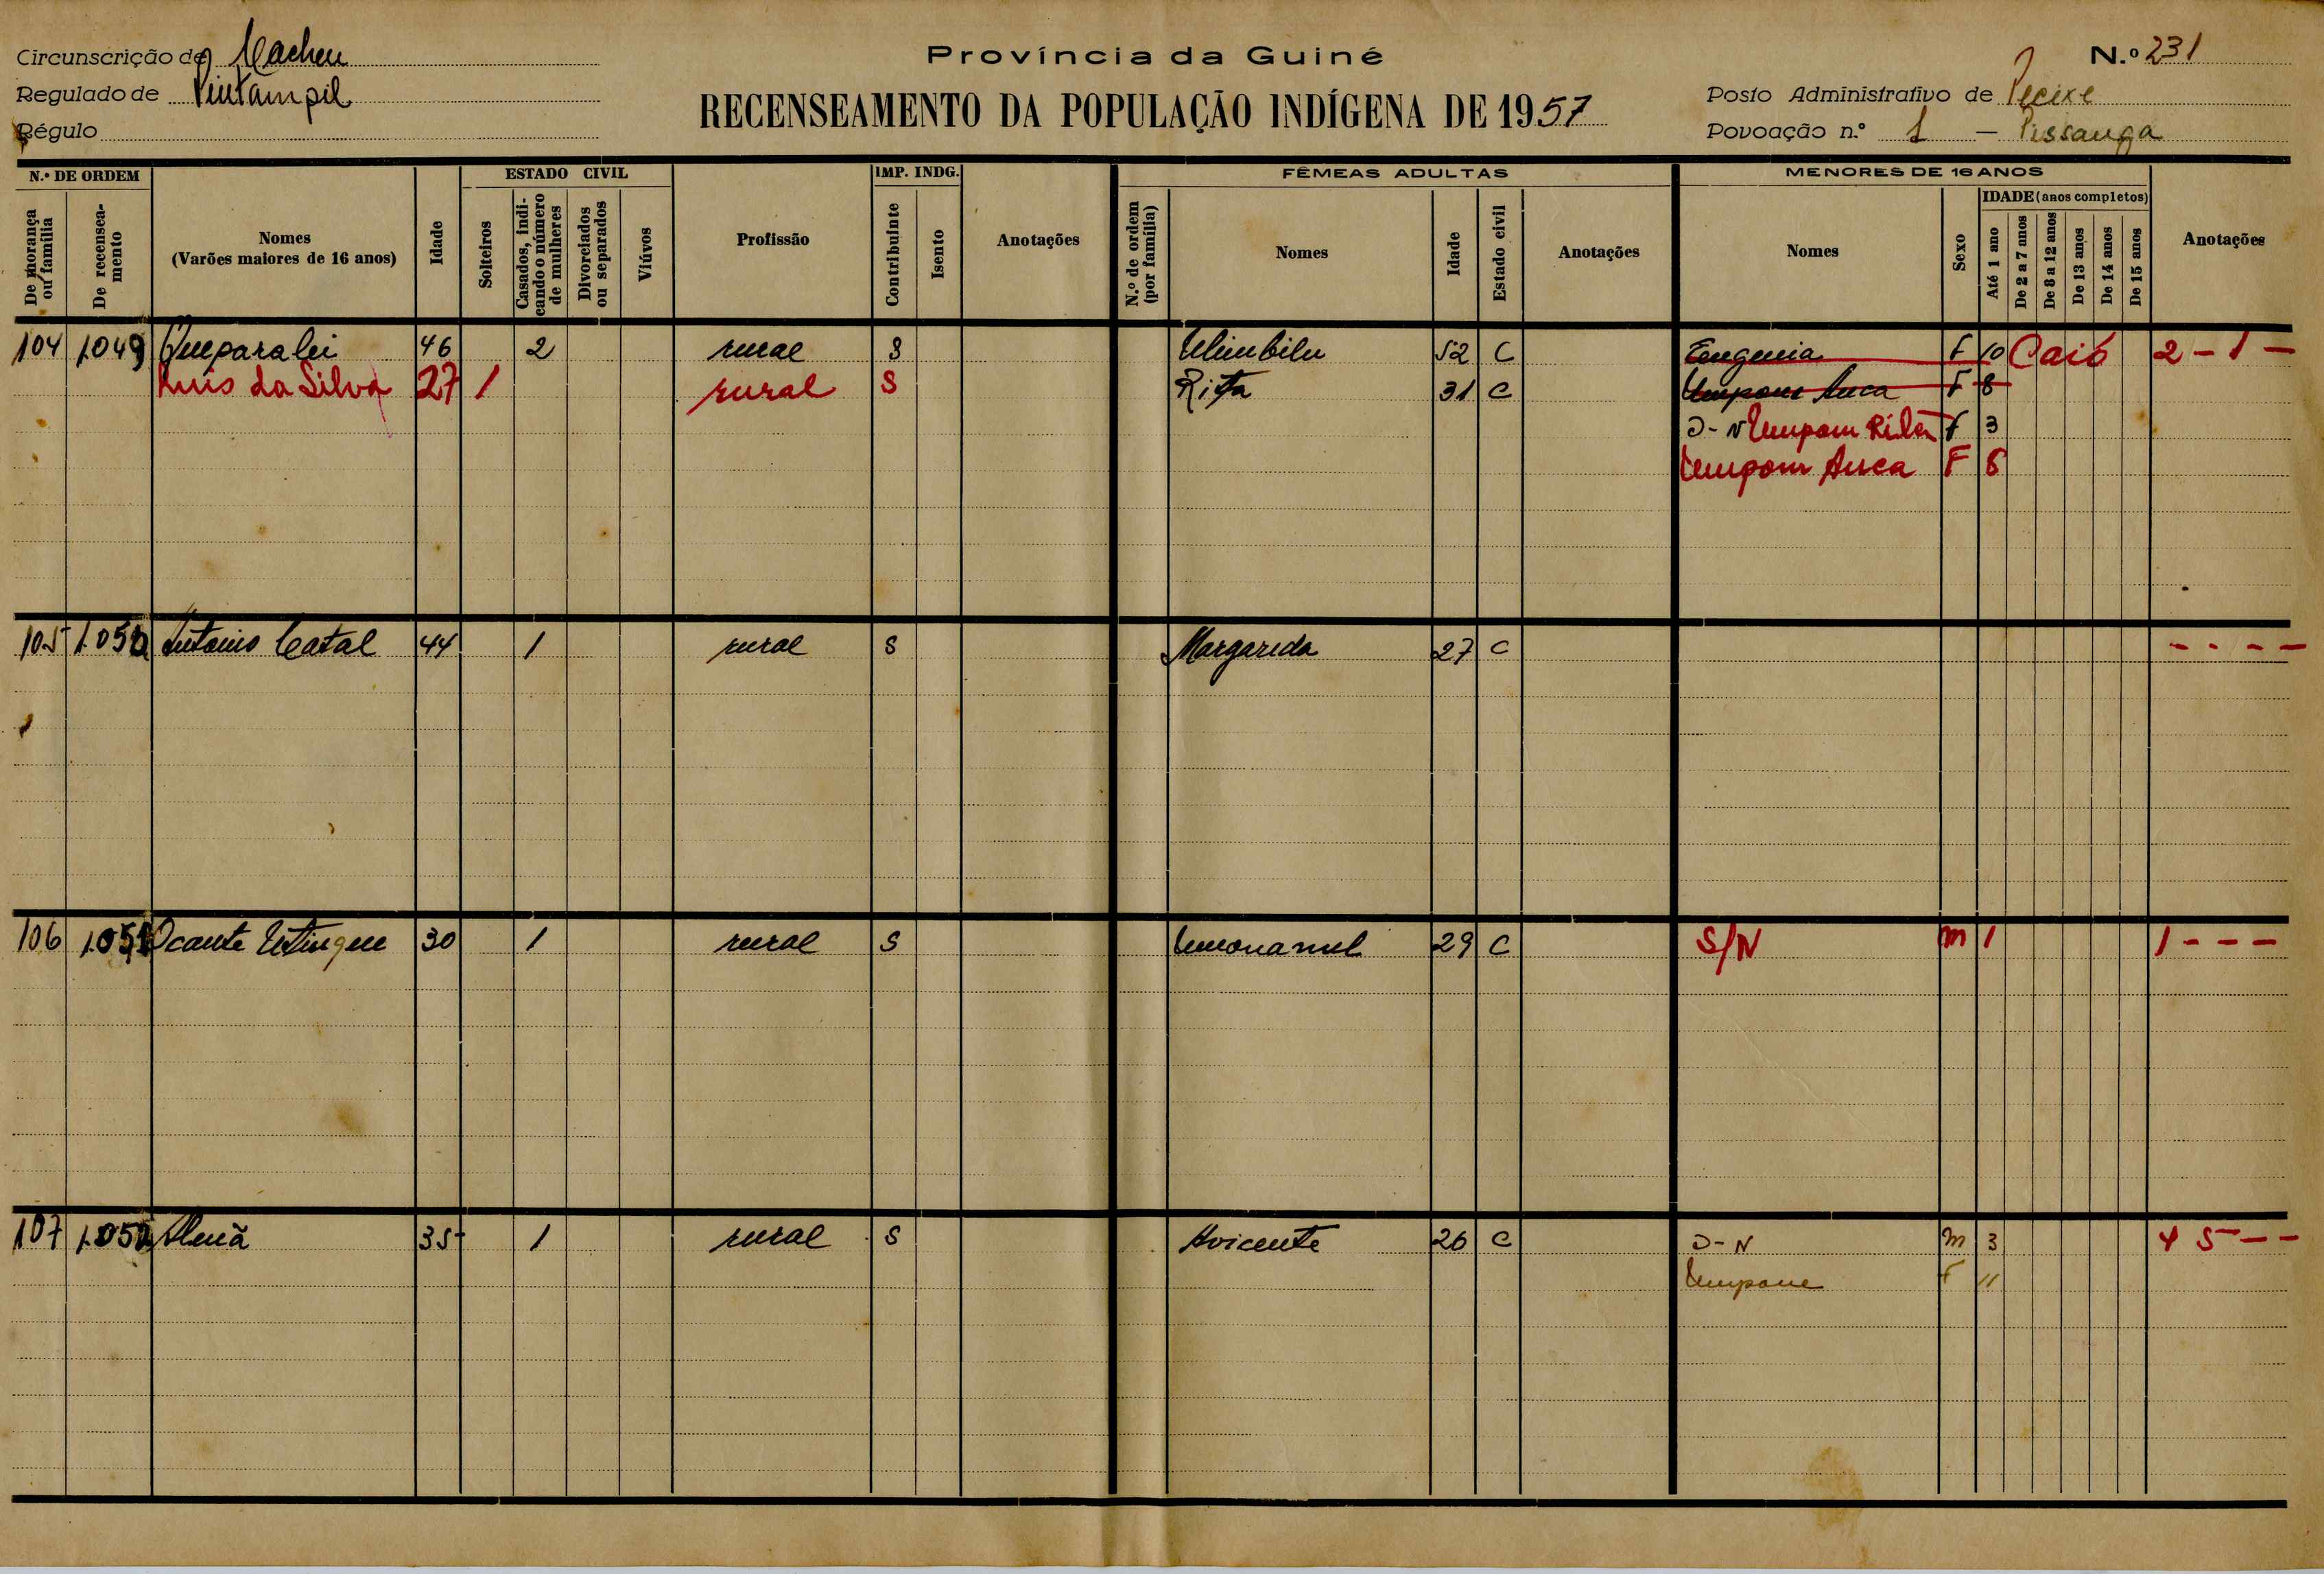 Circunscrição de Cacheu
Província da Guiné
N.º 231
Regulado de Pintampil
RECENSEAMENTO DA POPULAÇÃO INDÍGENA DE 1957
Posto Administrativo de Pecixe
Régulo
Povoação n.º 1 — Pissanga
N.º DE ORDEM
De morança ou família
De recenseamento
Nomes
(Varões maiores de 16 anos)
Idade
ESTADO CIVIL
Solteiros
Casados, indicando o número de mulheres
Divorciados ou separados
Viúvos
Profissão
IMP. INDG.
Contribuinte
Isento
Anotações
FÊMEAS ADULTAS
N.º de ordem (por família)
Nomes
Idade
Estado civil
Anotações
MENORES DE 16 ANOS
Nomes
Sexo
IDADE (anos completos)
Até 1 ano
De 2 a 7 anos
De 8 a 12 anos
De 13 anos
De 14 anos
De 15 anos
Anotações
104 1.049 Queparalei 46 2 rural S 52 C Eugenia F 10 Caió 2 - 1 -
Luis da Silva 27 1 rural S Rita 31 C Umpom Anca F 8
D-N Umpom Rita F 3
Umpom Anca F 8
105 1.050 Antonio Catal 44 1 rural S Margarida 27 C - - - -
106 1.051 Ocante 30 1 rural S 29 C S/N M 1 1 - - -
107 1.052 35 1 rural S Avicente 26 C D-N M 3 4 5 - -
Umpone F "